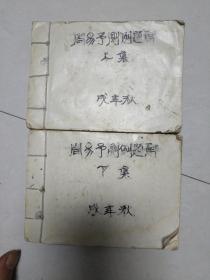 周易予测例题解
上集
戊年秋
周易予测例题解
下集
戊年秋